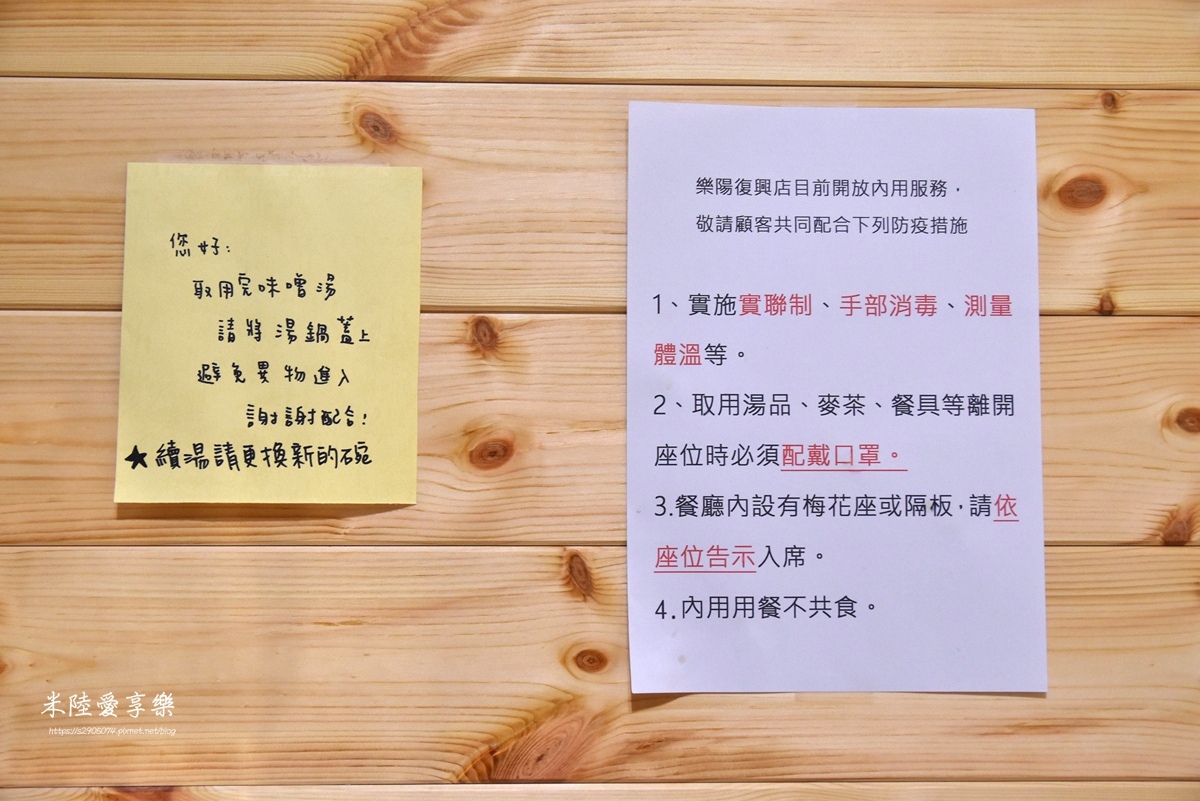 您好:
取用完味噌湯
請將湯鍋蓋上
避免異物進入
謝謝配合!
★續湯請更換新的碗
樂陽復興店目前開放內用服務，
敬請顧客共同配合下列防疫措施
1、實施實聯制、手部消毒、測量
體溫等。
2、取用湯品、麥茶、餐具等離開
座位時必須配戴口罩。
3.餐廳內設有梅花座或隔板，請依
座位告示入席。
4.內用用餐不共食。
米陸愛享樂
https://s2905074.pixnet.net/blog